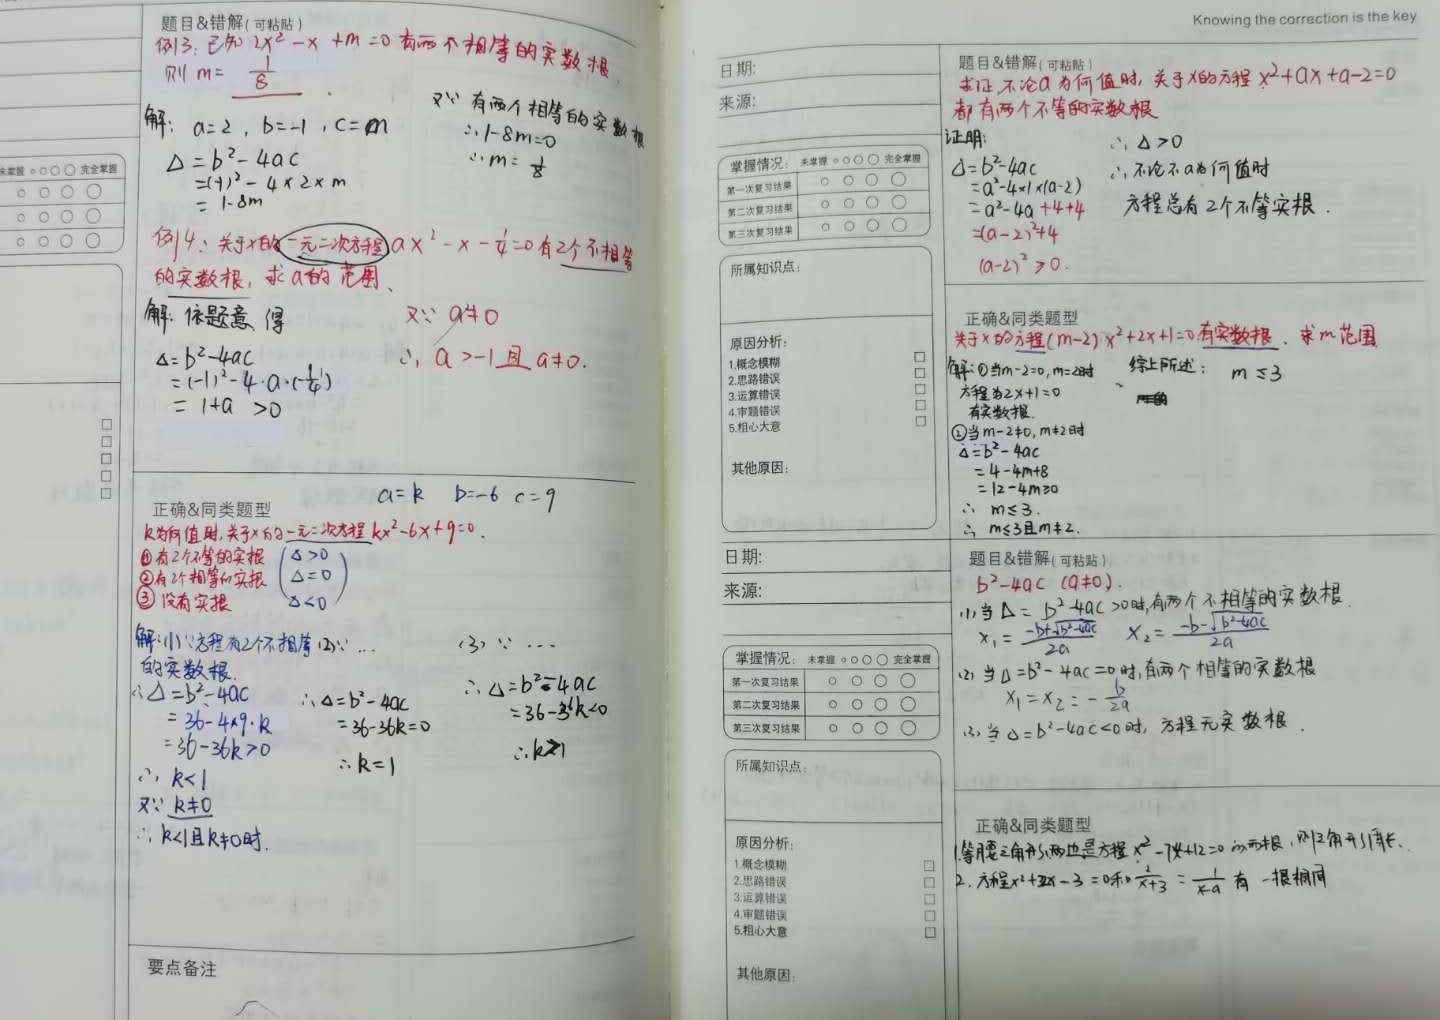 题目&错解(可粘贴)
例3:已知 2x²-x+m=0有两个相等的实数根,
则 m= 1/8 .
解: a=2, b=-1, c=m
△=b²-4ac
=(-1)²-4×2×m
=1-8m
又∵有两个相等的实数根
∴1-8m=0
∴m=1/8
未掌握 完全掌握
例4:关于x的一元二次方程ax²-x-1/4=0有2个不相等
的实数根,求a的范围、
解:依题意得
△=b²-4ac
=(-1)²-4·a·(-1/4)
=1+a >0
又∵ a≠0
∴a>-1且a≠0.
a=k b=-6 c=9
正确&同类题型
k为何值时,关于x的一元二次方程kx²-6x+9=0.
①有2个不等的实根 (△>0
②有2个相等的实根 △=0
③没有实根 △<0)
解:(1)∵方程有2个不相等
的实数根.
∴△=b²-4ac
=36-4×9·k
=36-36k>0
∴k<1
又∵k≠0
∴k<1且k≠0时.
(2)∵...
∴△=b²-4ac
=36-36k=0
∴k=1
(3)∵...
∴△=b²-4ac
=36-36k<0
∴k>1
要点备注
Knowing the correction is the key
日期:
来源:
掌握情况: 未掌握 完全掌握
第一次复习结果
第二次复习结果
第三次复习结果
所属知识点:
原因分析:
1.概念模糊
2.思路错误
3.运算错误
4.审题错误
5.粗心大意
其他原因:
题目&错解(可粘贴)
求证,不论a为何值时,关于x的方程x²+ax+a-2=0
都有两个不等的实数根
证明:
△=b²-4ac
=a²-4×1×(a-2)
=a²-4a+4+4
=(a-2)²+4
(a-2)²≥0.
∴△>0
∴不论不a为何值时
方程总有2个不等实根.
正确&同类题型
关于x的方程(m-2)x²+2x+1=0有实数根、求m范围
解:①当m-2=0,m=2时
方程为2x+1=0
有实数根.
②当m-2≠0,m≠2时
△=b²-4ac
=4-4m+8
=12-4m≥0
∴ m≤3.
∴ m≤3且m≠2.
综上所述: m≤3
日期:
来源:
掌握情况: 未掌握 完全掌握
第一次复习结果
第二次复习结果
第三次复习结果
所属知识点:
原因分析:
1.概念模糊
2.思路错误
3.运算错误
4.审题错误
5.粗心大意
其他原因:
题目&错解(可粘贴)
b²-4ac (a≠0).
(1)当△=b²-4ac>0时,有两个不相等的实数根.
x₁=(-b+√(b²-4ac))/2a x₂=(-b-√(b²-4ac))/2a
(2)当△=b²-4ac=0时,有两个相等的实数根
x₁=x₂=-b/2a
(3)当△=b²-4ac<0时,方程无实数根.
正确&同类题型
1.等腰三角形两边是方程x²-7x+12=0的两根,则三角形周长.
2.方程x²+2x-3=0和2/(x+3)=1/(x-a)有一根相同